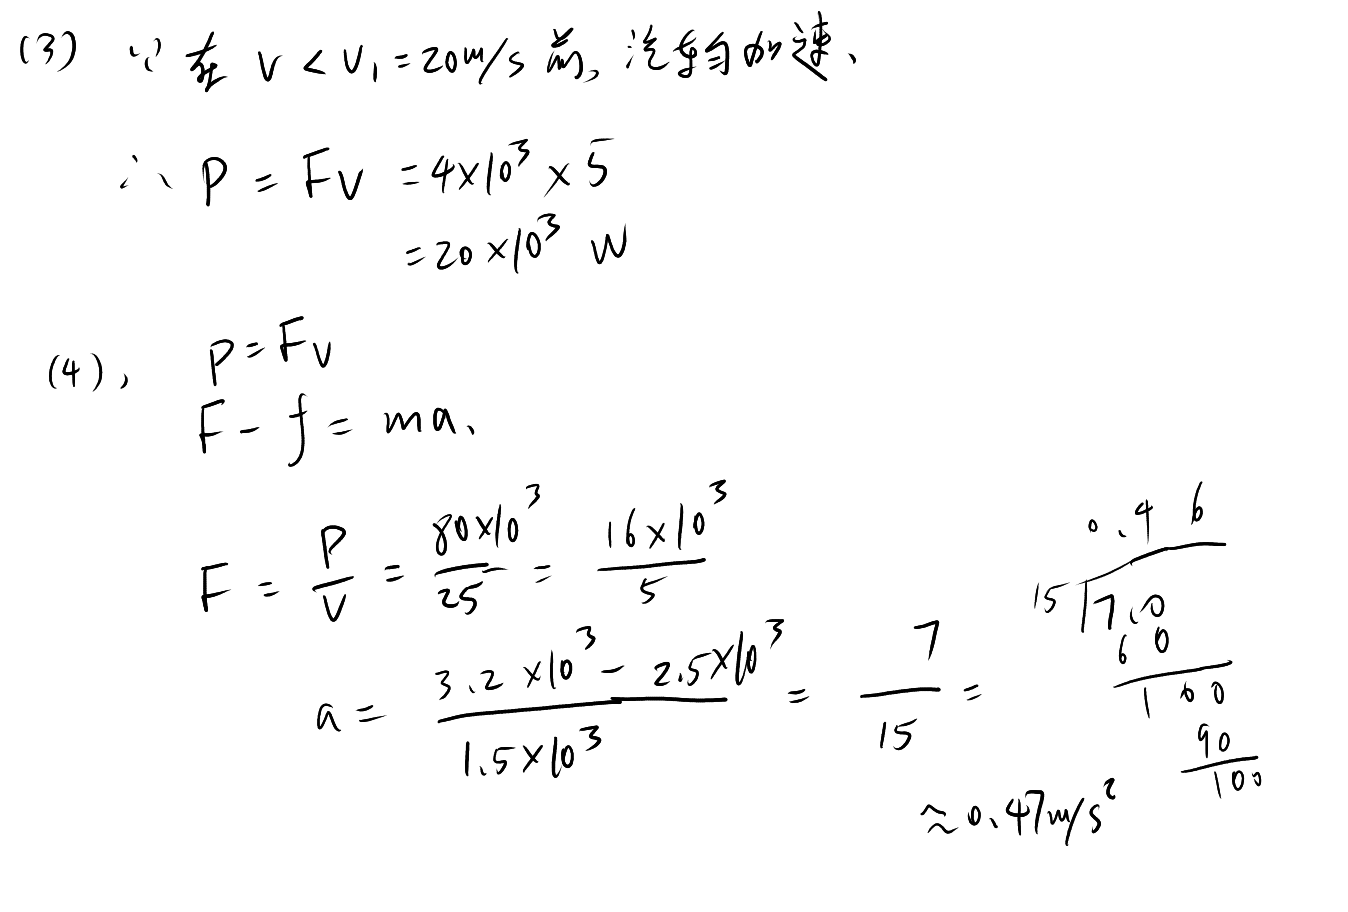 (3) ∵ 在 v < v₁ = 20m/s 前, 汽车匀加速、
∴ P = Fv = 4×10³ × 5
= 20 ×10³ W
(4), P = Fv
F - f = ma、
F = P/v = 80×10³/25 = 16×10³/5
a = (3.2×10³ - 2.5×10³)/(1.5×10³) = 7/15 =
≈ 0.47m/s²
0.46
15 7.0
60
100
90
100